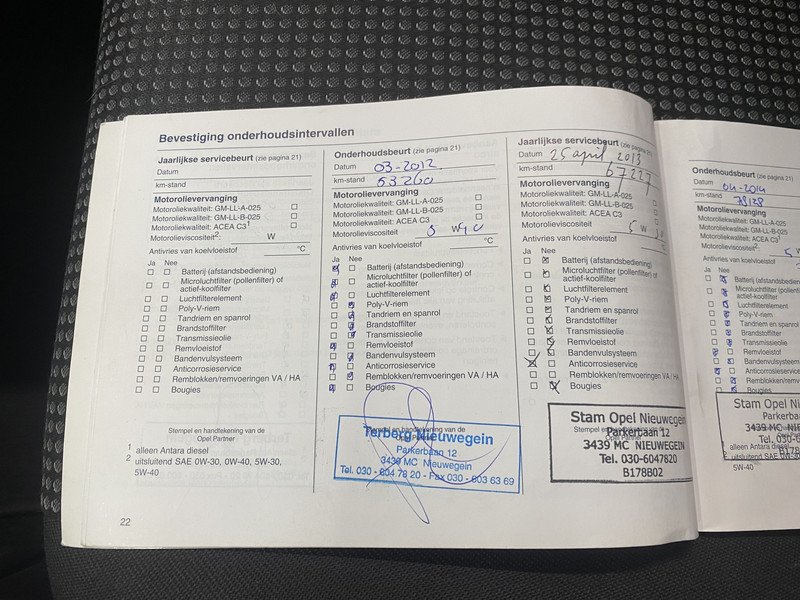 Bevestiging onderhoudsintervallen
Jaarlijkse servicebeurt (zie pagina 21)
Datum
km-stand
Motorolievervanging
Motoroliekwaliteit: GM-LL-A-025
Motoroliekwaliteit: GM-LL-B-025
Motoroliekwaliteit: ACEA C3¹
Motorolieviscositeit²: W
Antivries van koelvloestof °C
Ja Nee
Batterij (afstandsbediening)
Microluchtfilter (pollenfilter) of
actief-koolfilter
Luchtfilterelement
Poly-V-riem
Tandriem en spanrol
Brandstoffilter
Transmissieolie
Remvloeistof
Bandenvulsysteem
Anticorrosieservice
Remblokken/remvoeringen VA / HA
Bougies
Stempel en handtekening van de
Opel Partner
1 alleen Antara diesel
2 uitsluitend SAE 0W-30, 0W-40, 5W-30,
5W-40
22
Onderhoudsbeurt (zie pagina 21)
Datum 03-2012
km-stand 53260
Motorolievervanging
Motoroliekwaliteit: GM-LL-A-025
Motoroliekwaliteit: GM-LL-B-025
Motoroliekwaliteit: ACEA C3
Motorolieviscositeit 5 W 40
Antivries van koelvloestof °C
Ja Nee
Batterij (afstandsbediening)
Microluchtfilter (pollenfilter) of
actief-koolfilter
Luchtfilterelement
Poly-V-riem
Tandriem en spanrol
Brandstoffilter
Transmissieolie
Remvloeistof
Bandenvulsysteem
Anticorrosieservice
Remblokken/remvoeringen VA / HA
Bougies
Stempel en handtekening van de
Opel Partner
Terberg Nieuwegein
Parkerbaan 12
3439 MC Nieuwegein
Tel. 030 - 604 78 20 - Fax 030 - 603 63 69
Jaarlijkse servicebeurt (zie pagina 21)
Datum 25 april, 2013
km-stand 67227
Motorolievervanging
Motoroliekwaliteit: GM-LL-A-025
Motoroliekwaliteit: GM-LL-B-025
Motoroliekwaliteit: ACEA C3
Motorolieviscositeit 5 W
Antivries van koelvloestof
Ja Nee
Batterij (afstandsbediening)
Microluchtfilter (pollenfilter) of
actief-koolfilter
Luchtfilterelement
Poly-V-riem
Tandriem en spanrol
Brandstoffilter
Transmissieolie
Remvloeistof
Bandenvulsysteem
Anticorrosieservice
Remblokken/remvoeringen VA / HA
Bougies
Stam Opel Nieuwegein
Parkerbaan 12
3439 MC NIEUWEGEIN
Tel. 030-6047820
B178B02
Onderhoudsbeurt (zie pagina 21)
Datum 04-2014
km-stand
Motorolievervanging
Motoroliekwaliteit: GM-LL-A-025
Motoroliekwaliteit: GM-LL-B-025
Motoroliekwaliteit: ACEA C3
Motorolieviscositeit
Antivries van koelvloestof
Ja Nee
Batterij (afstandsbediening
Microluchtfilter (pollenfilter)
actief-koolfilter
Luchtfilterelement
Poly-V-riem
Tandriem en spanrol
Brandstoffilter
Transmissieolie
Remvloeistof
Bandenvulsysteem
Anticorrosieservice
Remblokken/remvoering
Bougies
Stam Opel N
Parkerba
3439 MC NIE
Tel. 030-6
B178
alleen Antara diesel
uitsluitend SAE 0W-30
5W-40